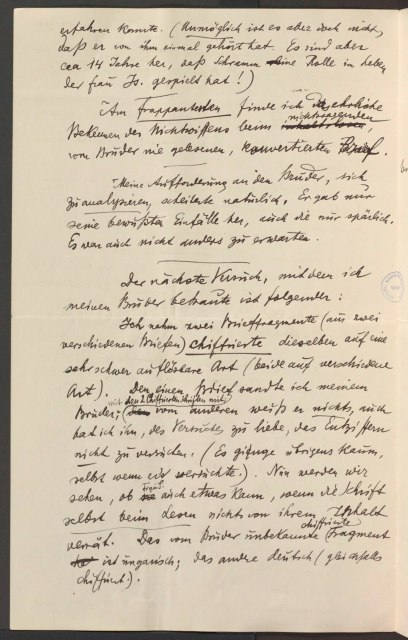 erfahren konnte. (Unmöglich ist es aber doch nicht,
daß er von ihm einmal gehört hat. Es sind aber
cca 14 Jahre her, daß Schramm eine Rolle im Leben
der frau Js. gespielt hat!)
Am frappantesten finde ich das ehrliche
Bekennen des Nichtwissens beim nichtssagenden,
vom Bruder nie gelesenen, kouvertierten Brief.
Meine Aufforderung an den Bruder, sich
zu analysieren, scheiterte natürlich. Er gab nur
seine bewußten Einfälle her, auch die nur spärlich.
Es war auch nicht anders zu erwarten.
Der nächste Versuch, mit dem ich
meinen Bruder betraute ist folgender:
Ich nahm zwei Brieffragmente (aus zwei
verschiedenen Briefen) chiffrierte dieselben auf eine
sehr schwer auflösbare Art (beide auf verschiedene
Art). Den einen Brief sandte ich meinem
Bruder; vom anderen weiß er nichts, auch
bat ich ihn, des Versuches zu liebe, das Entziffern
nicht zu versuchen. (Es gienge übrigens kaum,
selbst wenn er's versuchte.) Nun werden wir
sehen, ob Frau S. auch etwas kann, wenn die Schrift
selbst beim Lesen nichts von ihrem Inhalt
verrät. Das vom Bruder unbekannte chiffrierte Fragment
ist ungarisch; das andre deutsch (gleichfalls
chiffriert.).